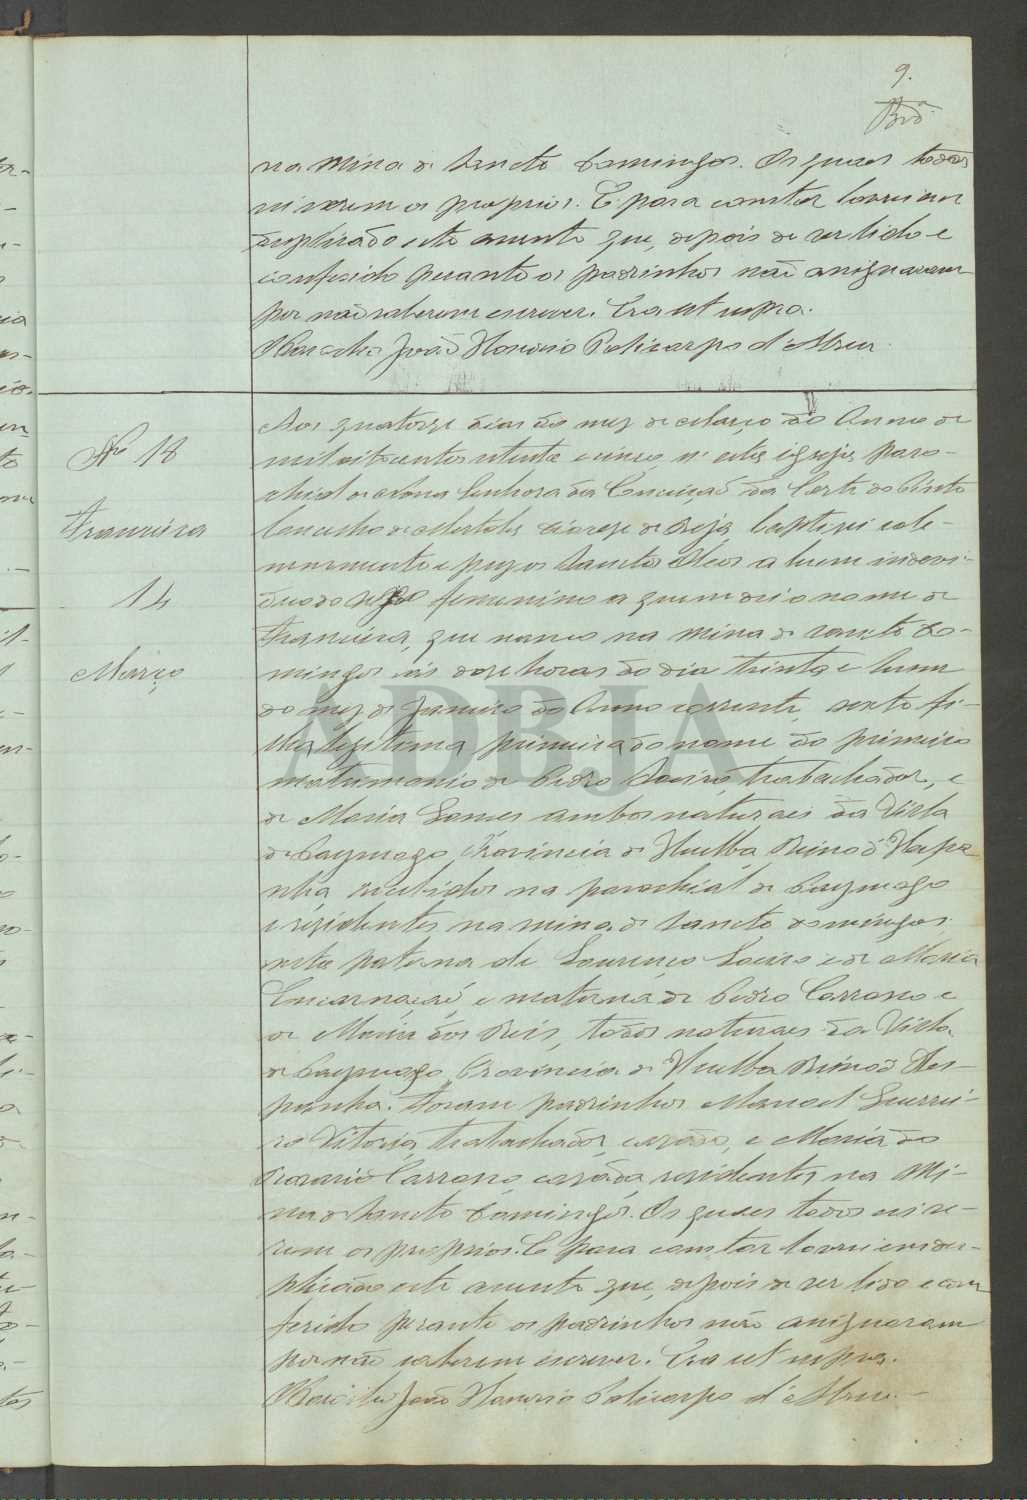 9.
na Mina de Sancto Domingos. Os quaes todos
sei serem os proprios. E para constar lavrei em
duplicado este assento que, depois de ser lido e
conferido perante os padrinhos não assignaram
por não saberem escrever. Era ut supra.
João Honorio Policarpo d'Abreu.
Nº 18
Francisca
14
Março
Aos quatorze dias do mez de Março do Anno de
mil oitocentos oitenta e cinco, n'esta igreja paro-
chial de Nossa Senhora da Conceição da Corte do Pinto
Concelho de Mertola, diocese de Beja, baptizei sole-
mnemente e puz os Sanctos Oleos a hum indevi-
duo do sexo femenino a quem dei o nome de
Francisca, que nasceo na Mina de Sancto Do-
mingos ás doze horas do dia trinta e hum
do mez de Janeiro do Anno corrente, sexto fi-
lha legitima, primeira do nome do primeiro
matrimonio de Pedro Soeiro, trabalhador, e
de Maria Gomes ambos naturaes da Villa
de Provincia de Huelba Reino d'Hespa-
nha, recebidos na parochial de
e rezidentes na mina de Sancto Domingos,
neta paterna de Lourenço Soeiro e de Maria
Encarnação, e materna de Pedro Carrasco e
de Maria dos Reis, todos naturaes da Villa
de Provincia de Huelba Reino d'Hes-
panha. Foram padrinhos Manoel Guerrei-
ro Vitoria, trabalhador, cazado, e Maria do
Rosario Carrasco, cazada, rezidentes na Mi-
na de Sancto Domingos. Os quaes todos sei se-
rem os proprios. E para constar lavrei em du-
plicado este assento que, depois de ser lido e con-
ferido perante os padrinhos não assignaram
por não saberem escrever. Era ut supra.
João Honorio Policarpo d'Abreu.
ADBJA